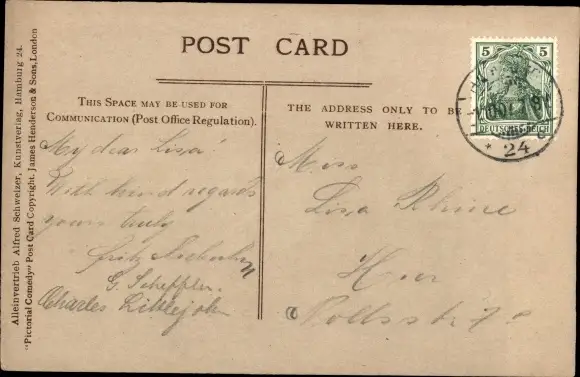 POST CARD
THIS SPACE MAY BE USED FOR
COMMUNICATION (Post Office Regulation).
THE ADDRESS ONLY TO BE
WRITTEN HERE.
5 5
DEUTSCHES REICH
* 24
My dear Lisa!
With kind regards
yours truly
Fritz
G. Scheffler.
Charles Littlejohn
Miss
Lisa Rhine
Hier
Alleinvertrieb Alfred Schweizer, Kunstverlag, Hamburg 24.
"Pictorial Comedy" Post Card Copyright. James Henderson & Sons, London